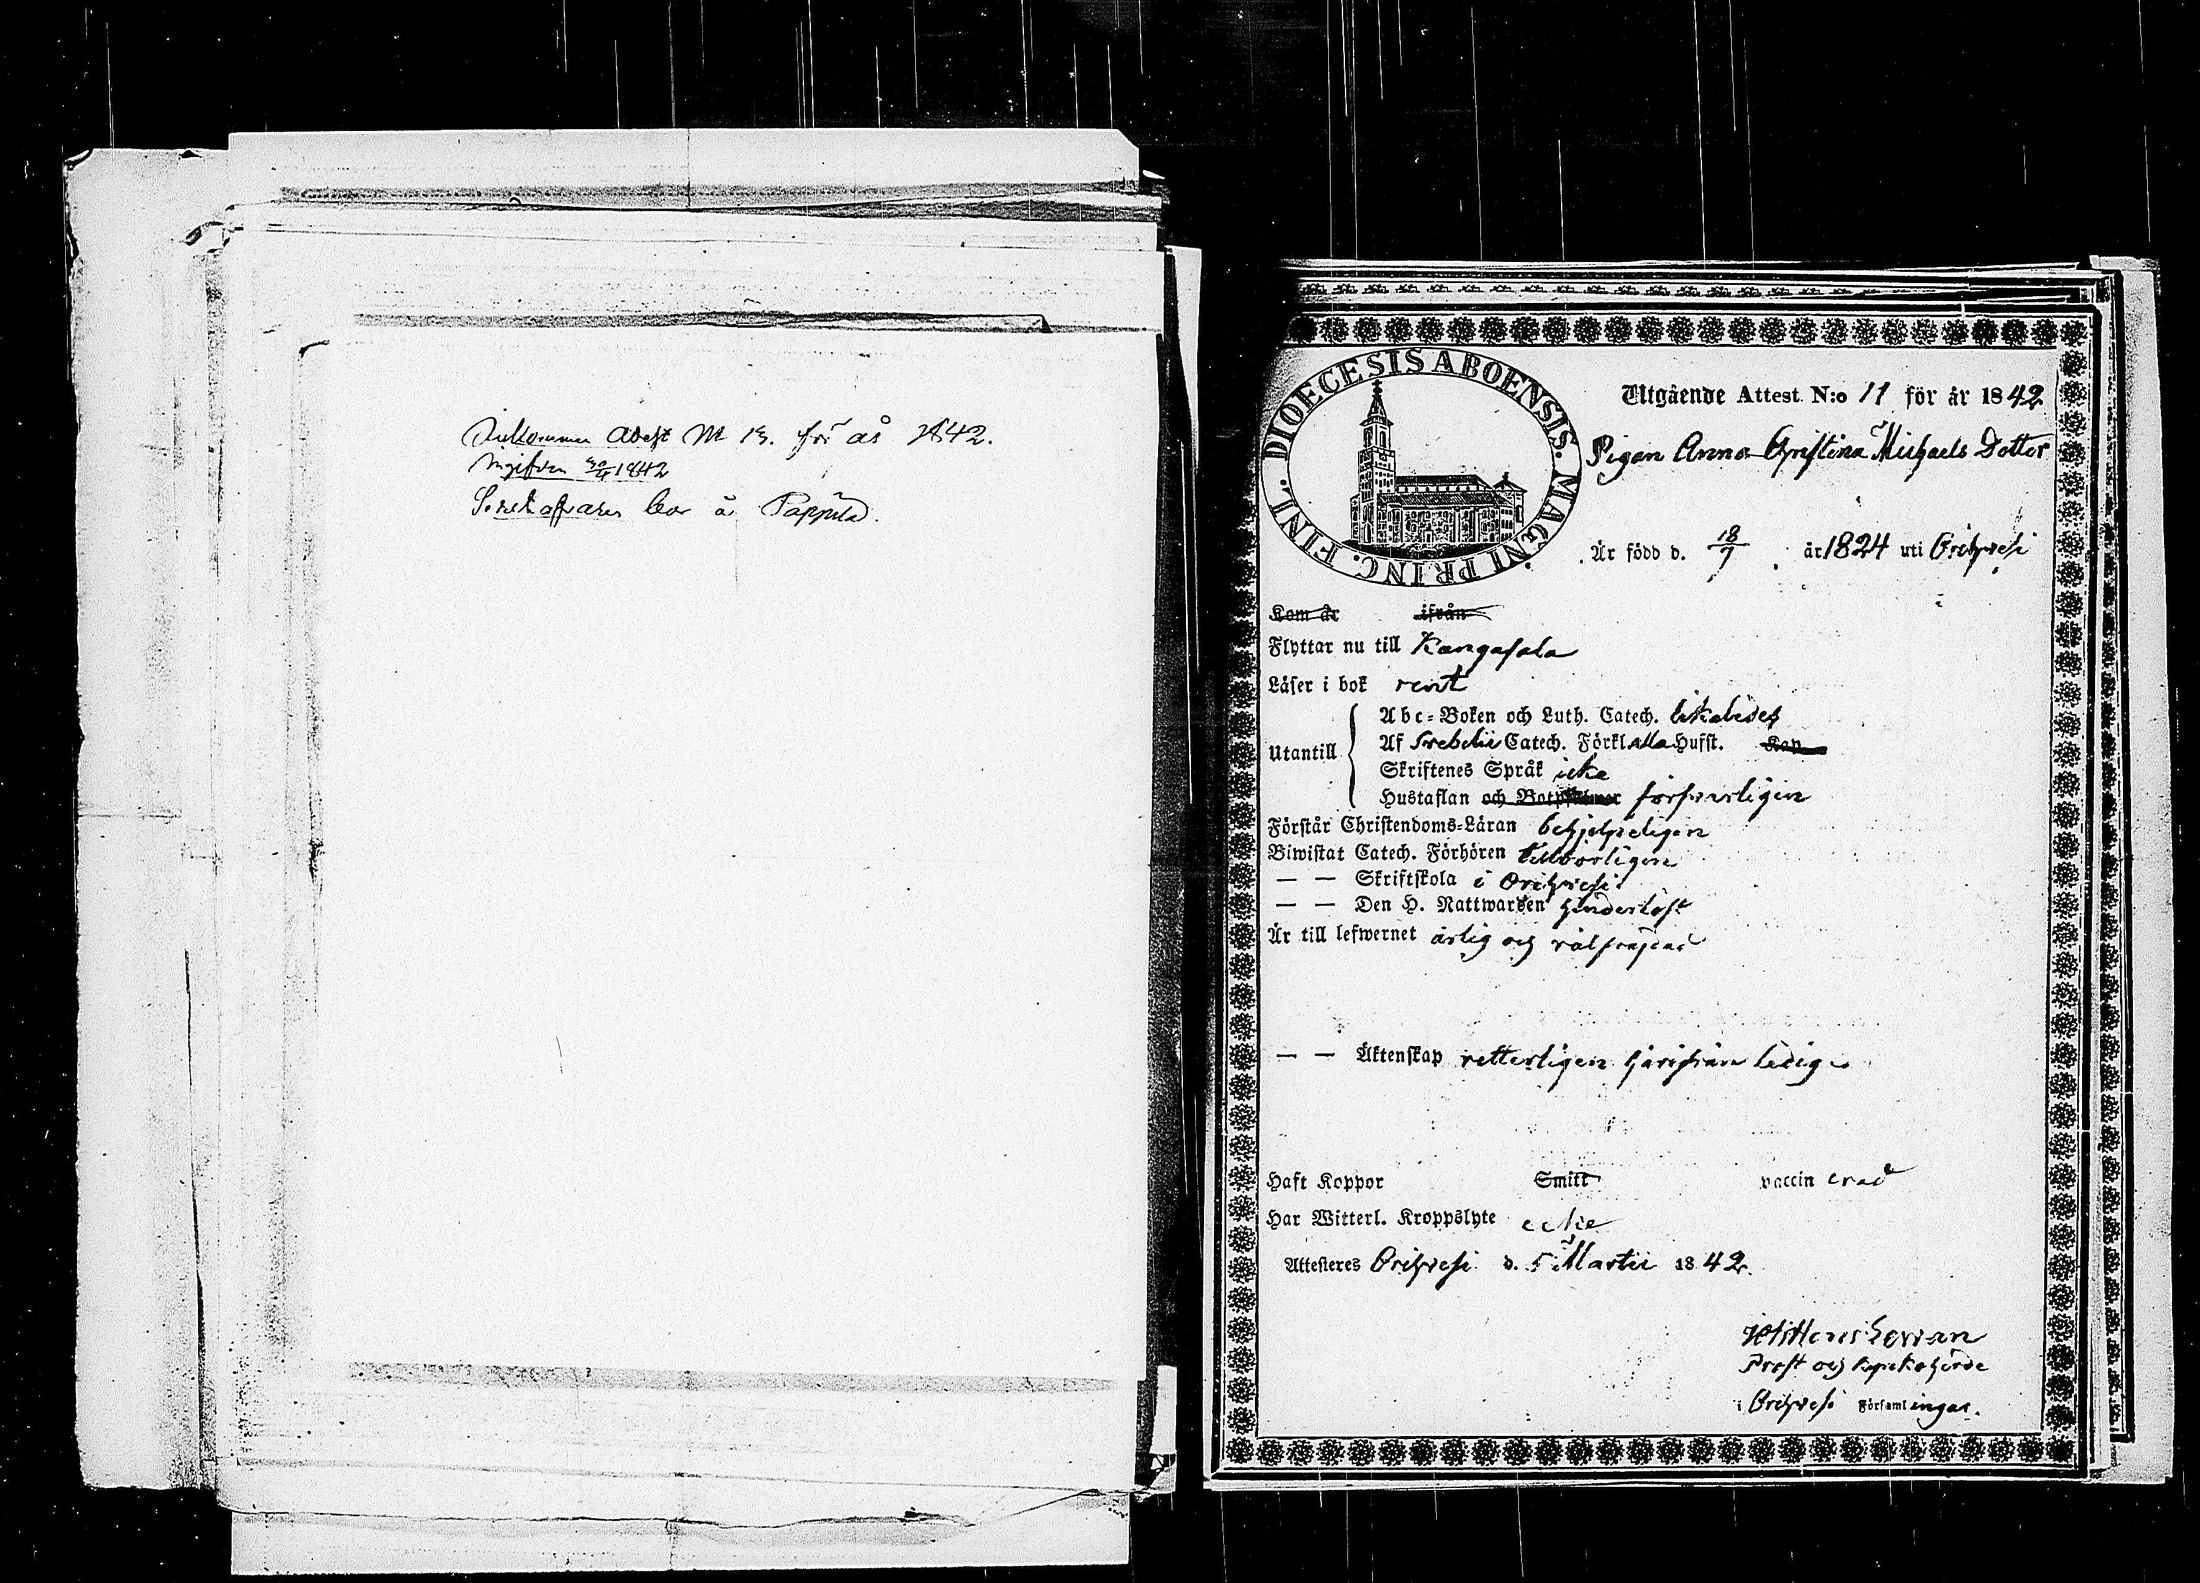 Inkomne Attest N 13. för år 1842.
Ingifven 30/4 1842
bor å Pappila.
DIOECESIS ABOENSIS. MAGNI PRINC. FINL.
Utgående Attest N:o 11 för år 1842
Pigan Anna Christina Michaels Dotter
Är född d. 18/7 år 1824 uti Orihvesi
Kom år ifrån
Flyttar nu till Kangasala
Läser i bok rent
Utantill
Abc-Boken och Luth. Catech. likaledes
Af Svebelii Catech. Förkl alla Hufst. Kap
Skriftenes Språk icke
Hustaflan och Botpsalmer försvarligen
Förstår Christendoms-Läran behjelpeligen
Biwistat Catech. Förhören tillbörligen
— — Skriftskola i Orihvesi
— — Den H. Nattwarden hinderlöst
Är till lefwernet ärlig och välfrejdad
— — Äktenskap vetterligen härifrån ledig
Haft Koppor Smitt vaccin erad
Har Witterl. Kroppslyte icke
Attesteres Orihvesi d. 5 Martii 1842.
Prost och Kyrkoherde
i Orihvesi Församl ingar.